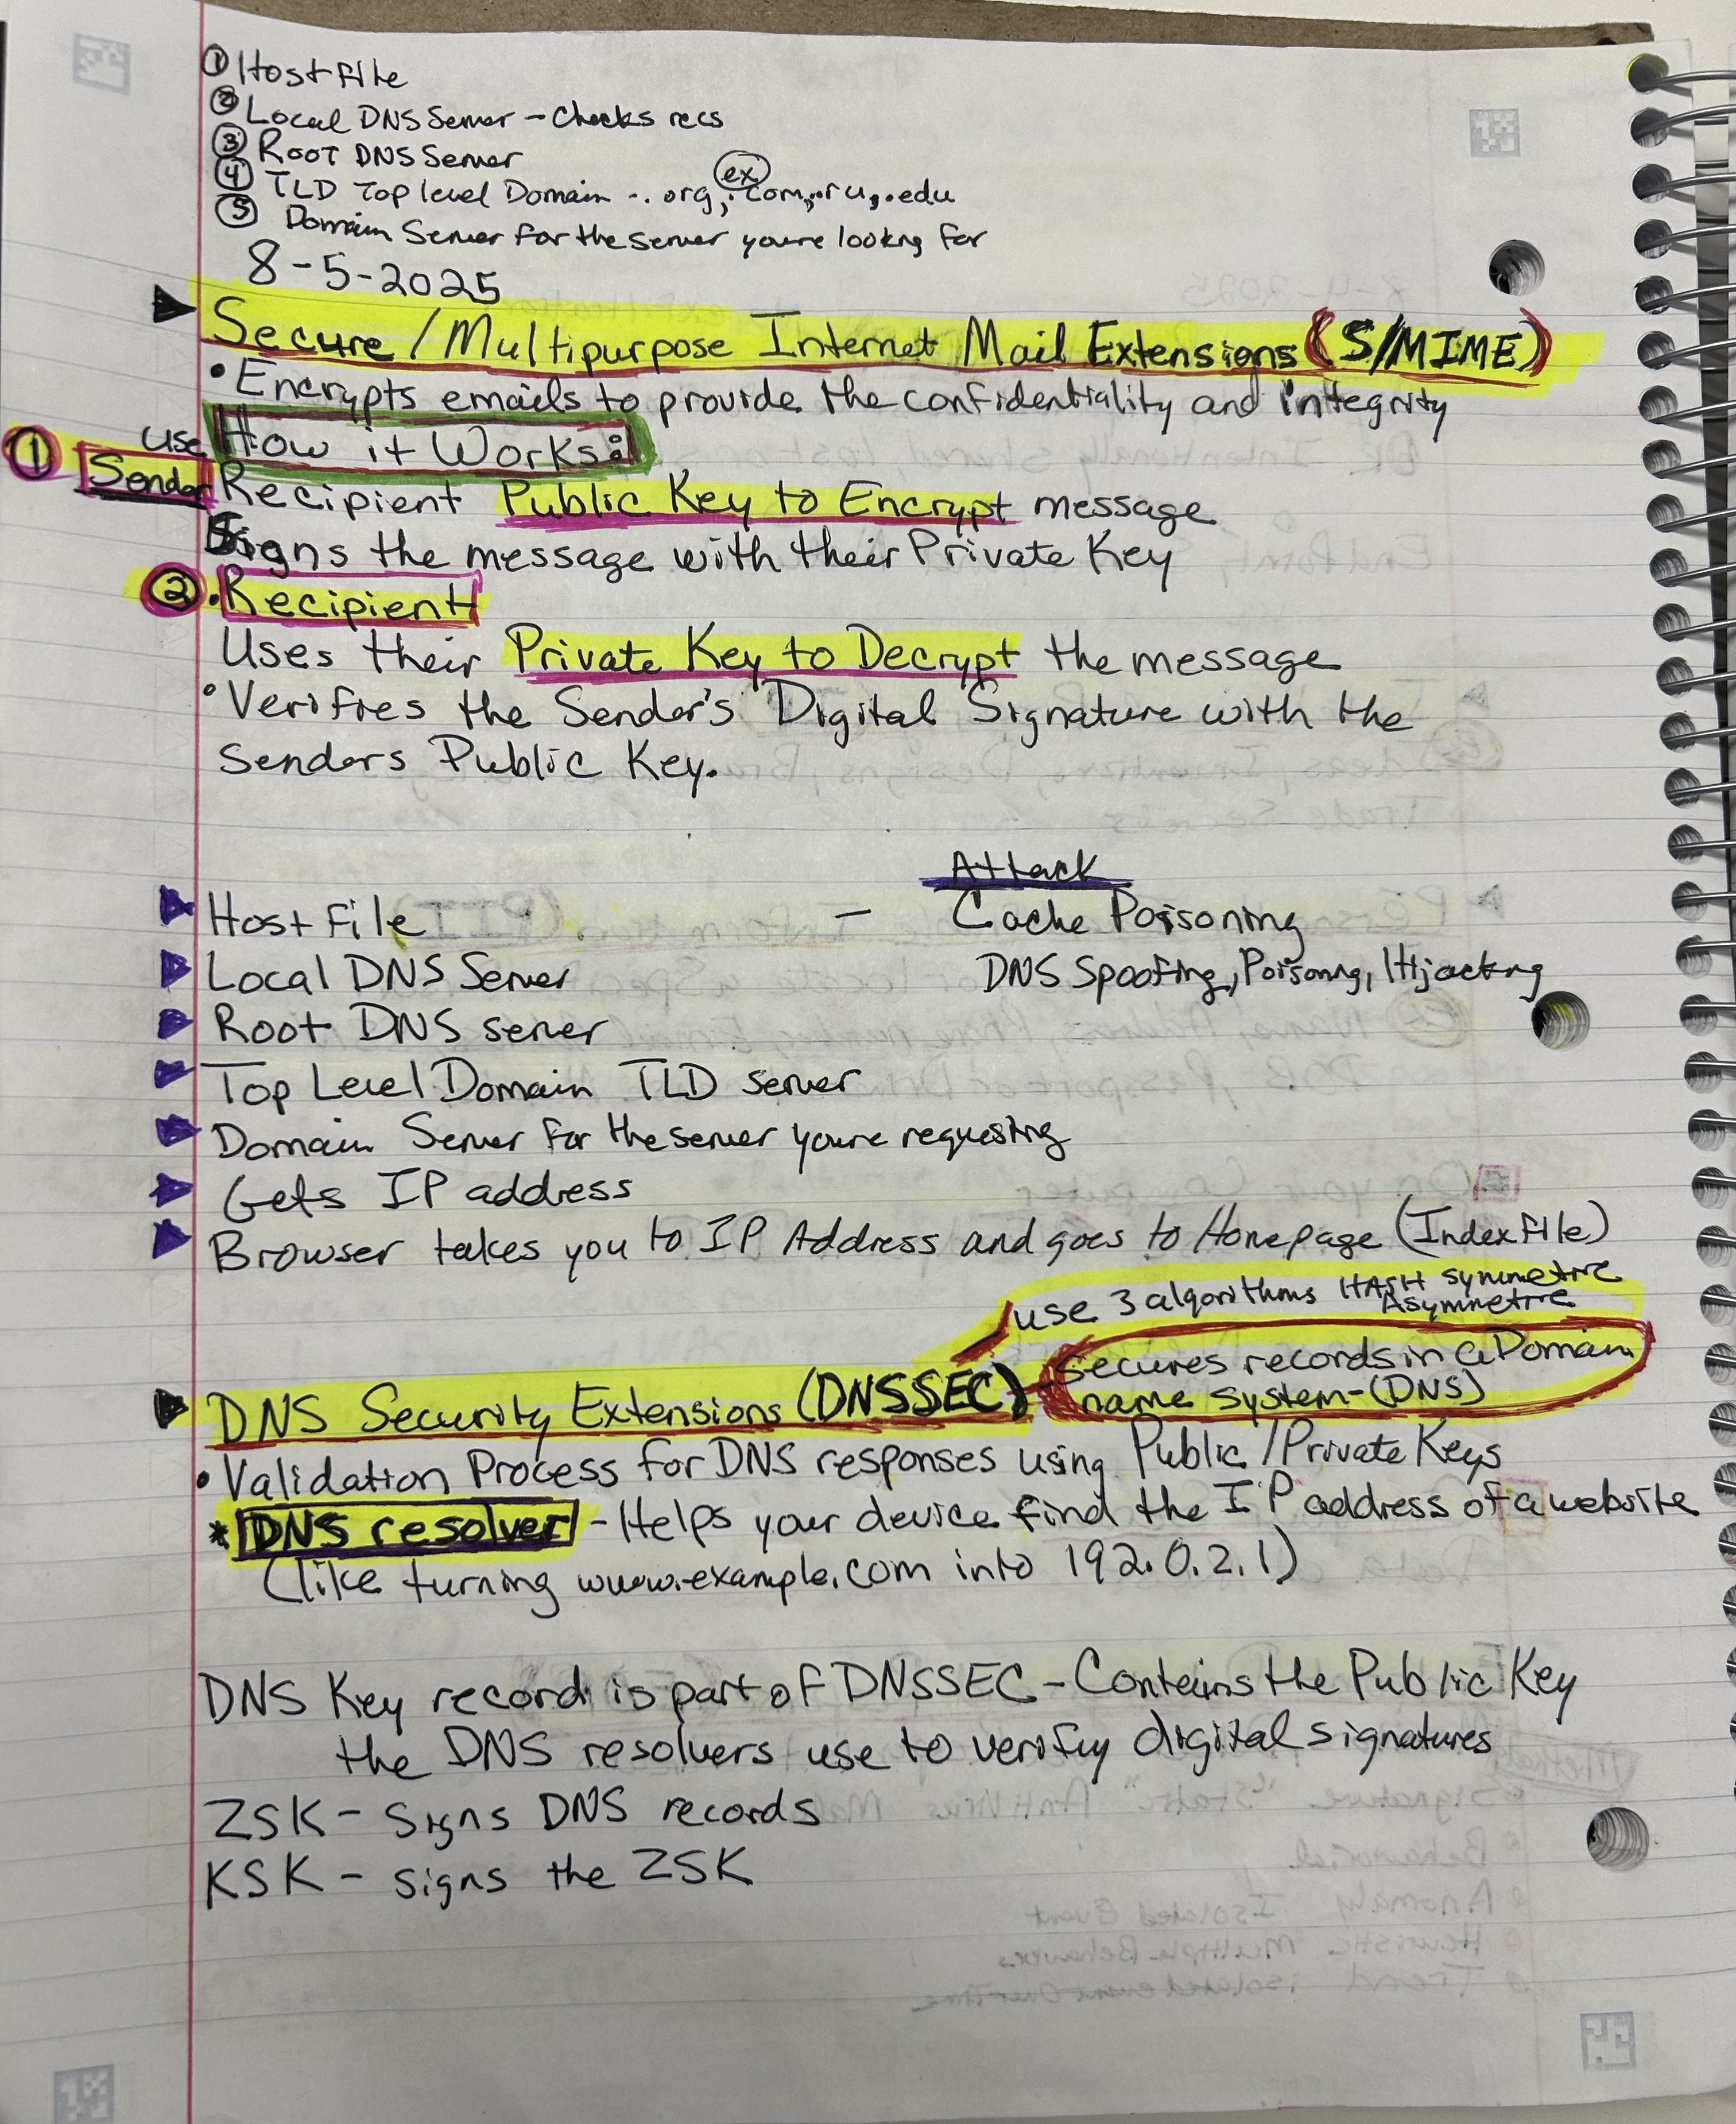 ① Host file
② Local DNS Server - Checks recs
③ Root DNS Server
ex
④ TLD Top level Domain - .org, .com, .ru, .edu
⑤ Domain Server for the server youre looking for
8-5-2025
Secure/Multipurpose Internet Mail Extensions (S/MIME)
• Encrypts emails to provide the confidentiality and integrity
How it Works:
① Sender use Recipient Public Key to Encrypt message
Signs the message with their Private Key
② • Recipient
Uses their Private Key to Decrypt the message
• Verifies the Sender's Digital Signature with the
Senders Public Key.
Attack
Host File - Cache Poisoning
Local DNS Server DNS Spoofing, Poisoning, Hijacking
Root DNS server
Top Level Domain TLD server
Domain Server for the server youre requesting
Gets IP address
Browser takes you to IP Address and goes to Homepage (Index file)
use 3 algorithms HASH symmetric
Asymmetric
DNS Security Extensions (DNSSEC) - secures records in a Domain
name system - (DNS)
• Validation Process for DNS responses using Public/Private Keys
* DNS resolver - Helps your device find the IP address of a website
(like turning www.example.com into 192.0.2.1)
DNS Key record is part of DNSSEC - Contains the Public Key
the DNS resolvers use to verify digital signatures
ZSK - Signs DNS records
KSK - signs the ZSK